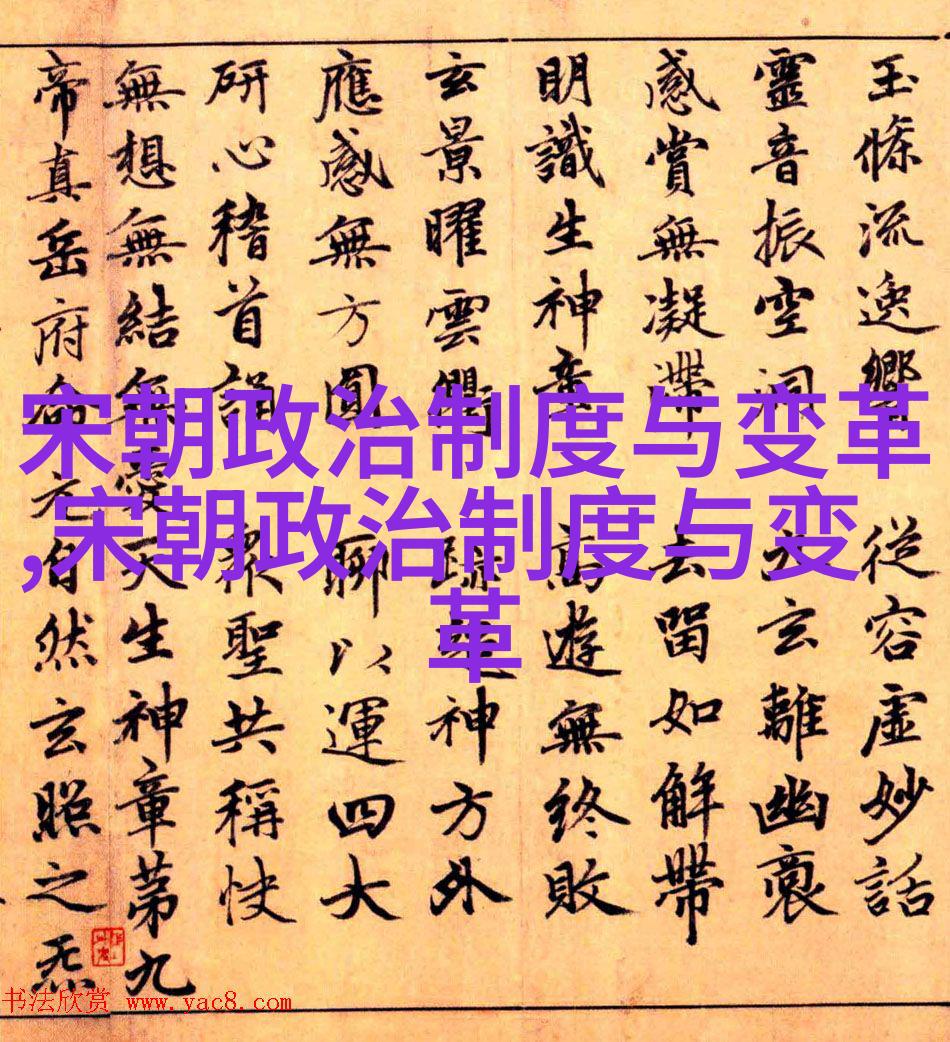 玉條流逸響
從容虛妙話
靈音振空洞
玄離幽裏
感賞無凝滯
去留如解帶
明識生神章
高遊無終敗
玄景曜雲
神方外
應感無方圓
聊以運四大
研心稽首誦
衆聖共稱快
無想無結無
天生神章第九
帝真岳府命元
自然玄照之炁
宋朝政治制度与变革
,宋朝政治制度与变
革
书法欣赏 www.yac8.com